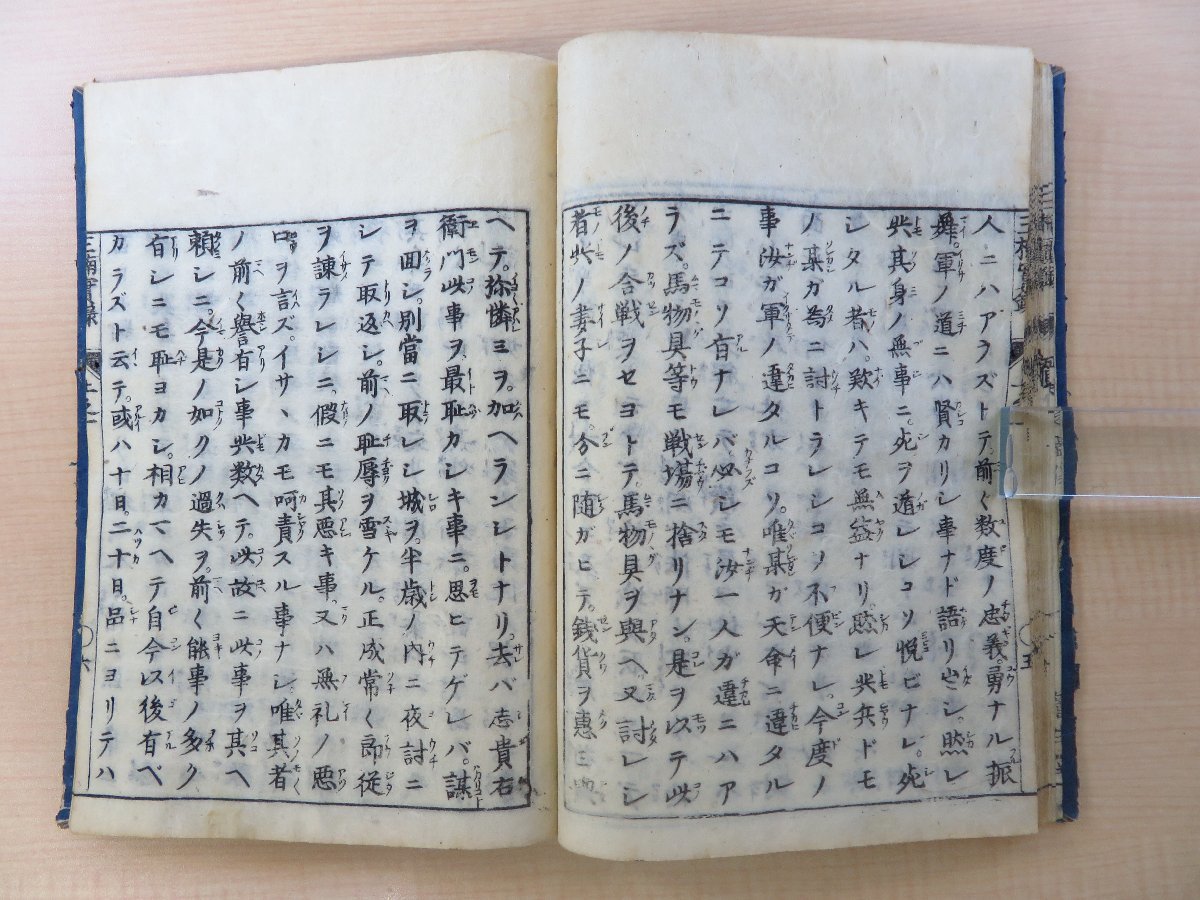 人ニハアラズトテ。前々数度ノ忠義。勇ナル振
舞。軍ノ道ニハ賢カリシ事ナド語リ出シ。然レ
共其身ノ無事ニ。死ヲ遁レシコソ悦ビナレ。死
シタル者ハ。歎キテモ無益ナリ。然レ共共ドモ
ノ某ガ為ニ討トラレシコソ不便ナレ。今度ノ
事汝ガ軍ノ違タルコソ。唯某ガ天命ニ違タル
ニテコソ有ナレバ。必シモ汝一人ガ違ニハア
ラズ。馬物具等モ戦場ニ捨リナン。是ヲ以テ此
後ノ合戦ヲセヨトテ。馬物具ヲ與ヘ。又討レシ
者共ノ妻子ニモ。分ニ随ガヒテ。銭貨ヲ恵ミ與
ヘテ。弥憐ミヲ。加ヘラレントナリ。去バ志貴右
衛門此事ヲ。最恥カシキ事ニ。思ヒテゲレバ。謀
ヲ回シ。別當ニ取レシ城ヲ。半歳ノ内ニ夜討ニ
シテ取返シ。前ノ恥辱ヲ雪ケル。正成常々郎従
ヲ諫ラレシニ。假ニモ其悪キ事。又ハ無礼ノ悪
口ヲ言ズ。イサヽカモ呵責スル事ナシ。唯其者
ノ前々誉有シ事共数ヘテ。此故ニ此事ヲ其ヘ
頼シニ。今是ノ如クノ過失ヲ。前々能事ノ多ク
有シニモ恥ヨカシ。相カマヘテ自今以後有ベ
カラズト云テ。或ハ十日。二十日。品ニヨリテハ